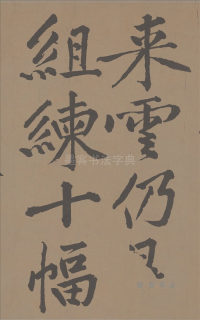 来雲仍
組練十幅